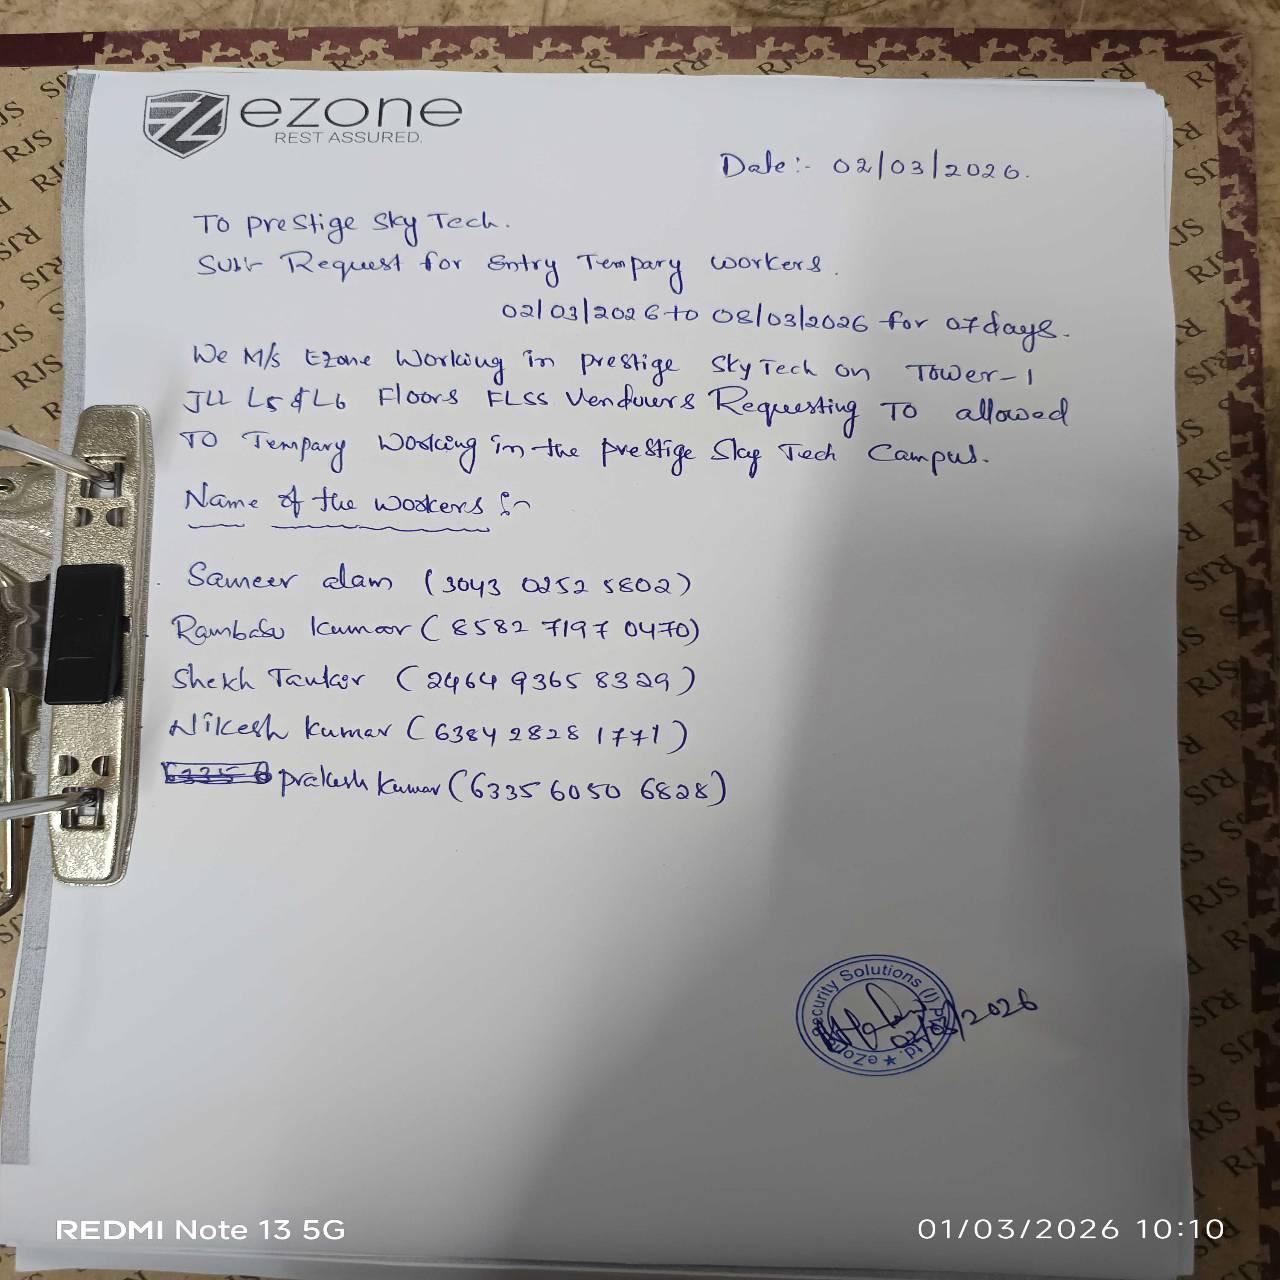 ezone
REST ASSURED.
Date:- 02/03/2026.
To Prestige Sky Tech.
Sub:- Request for Entry Tempary workers.
02/03/2026 to 08/03/2026 for 07 days.
We M/s Ezone Working in prestige Sky Tech on Tower-1
JLL L5 & L6 Floors FLSS Vendours Requesting To allowed
To Tempary Working in the prestige Sky Tech Campus.
Name of the workers :-
Sameer alam (3043 0252 5802)
Rambabu kumar (8582 7197 0470)
Shekh Taukir (2464 9365 8329)
Nikesh kumar (6384 2828 1771)
prakash kumar (6335 6050 6828)
eZone Security Solutions (I) Pvt. Ltd. ★
02/03/2026
REDMI Note 13 5G
01/03/2026 10:10